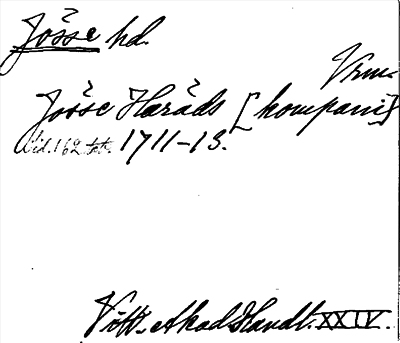 Jösse hd.
Vrm.
Jösse Häräds [kompani]
Vid. 162 1711-13.
Vitt. Akad Handl. XXIV.